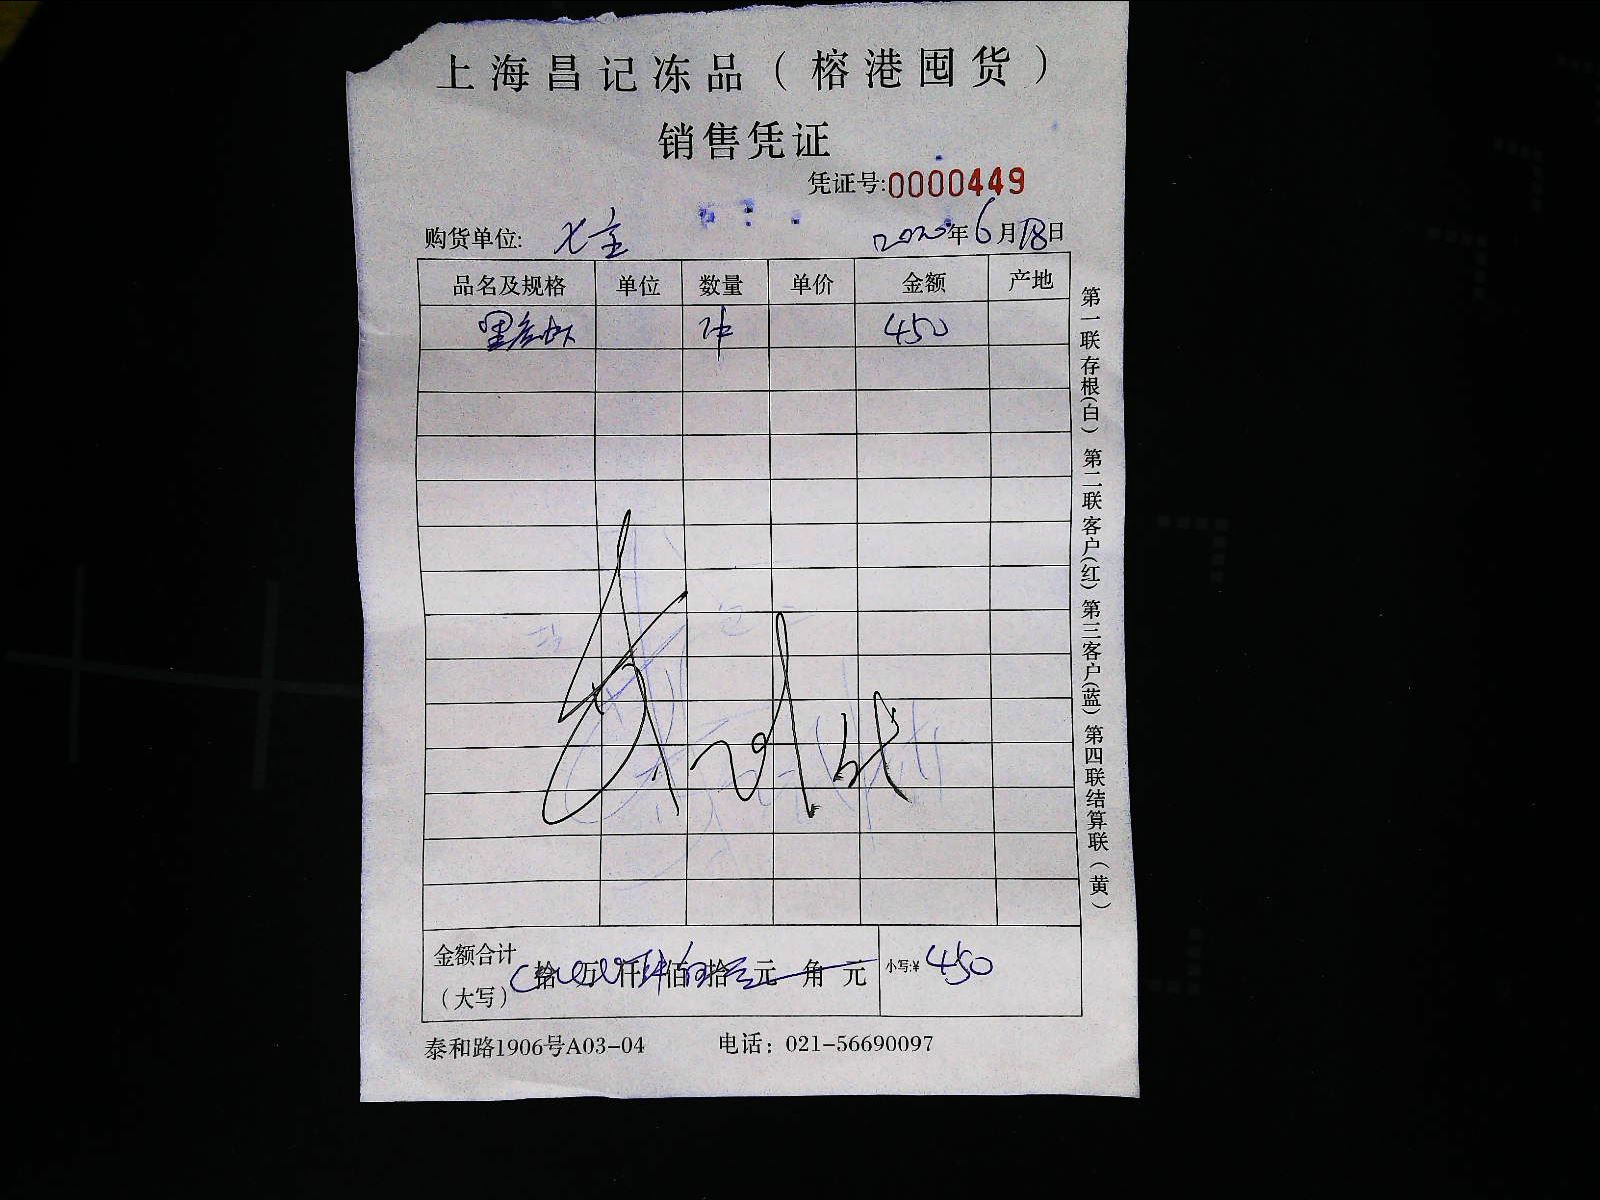 上海昌记冻品（榕港囤货）
销售凭证
凭证号:0000449
购货单位: 2020年6月18日
品名及规格 单位 数量 单价 金额 产地
黑虎虾 450
金额合计（大写） 拾 万 仟 佰 拾 元 角 元 小写:¥ 450
泰和路1906号A03-04 电话：021-56690097
第一联存根(白) 第二联客户(红) 第三客户(蓝) 第四联结算联(黄)